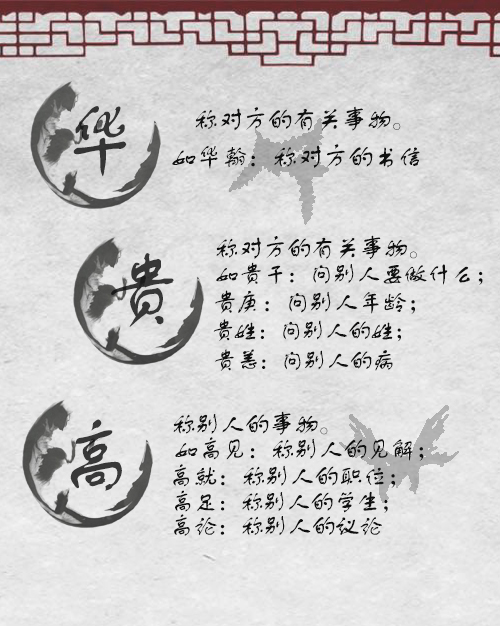 华
称对方的有关事物。
如华翰：称对方的书信
贵
称对方的有关事物。
如贵干：问别人要做什么；
贵庚：问别人年龄；
贵姓：问别人的姓；
贵恙：问别人的病
高
称别人的事物。
如高见：称别人的见解；
高就：称别人的职位；
高足：称别人的学生；
高论：称别人的议论